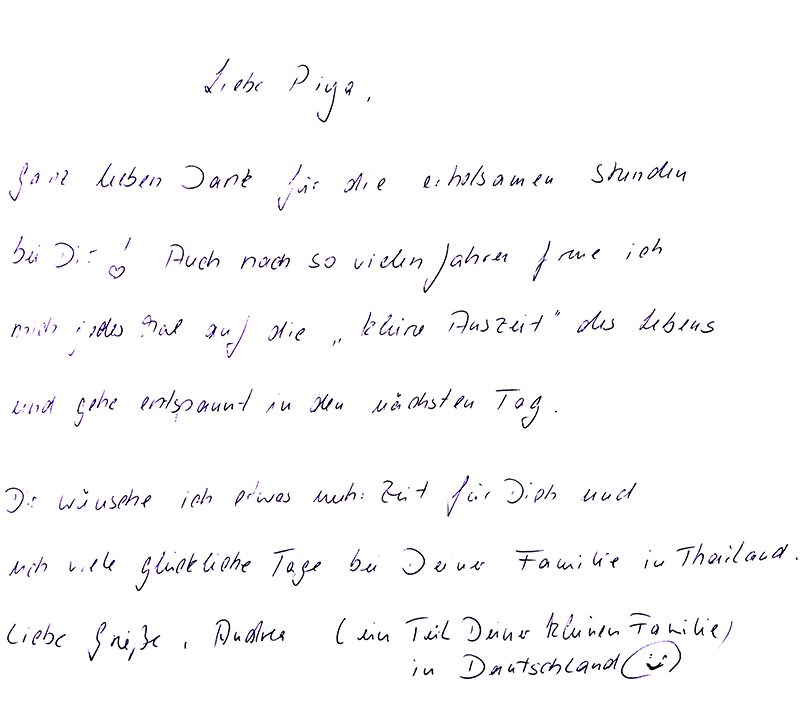 Liebe Piya,
ganz lieben Dank für die erholsamen Stunden
bei Dir! Auch nach so vielen Jahren freue ich
mich jedes Mal auf die „kleine Auszeit" des Lebens
und gehe entspannt in den nächsten Tag.
Dir wünsche ich etwas mehr Zeit für Dich und
noch viele glückliche Tage bei Deiner Familie in Thailand.
Liebe Grüße, Andrea (ein Teil Deiner kleinen Familie
in Deutschland)